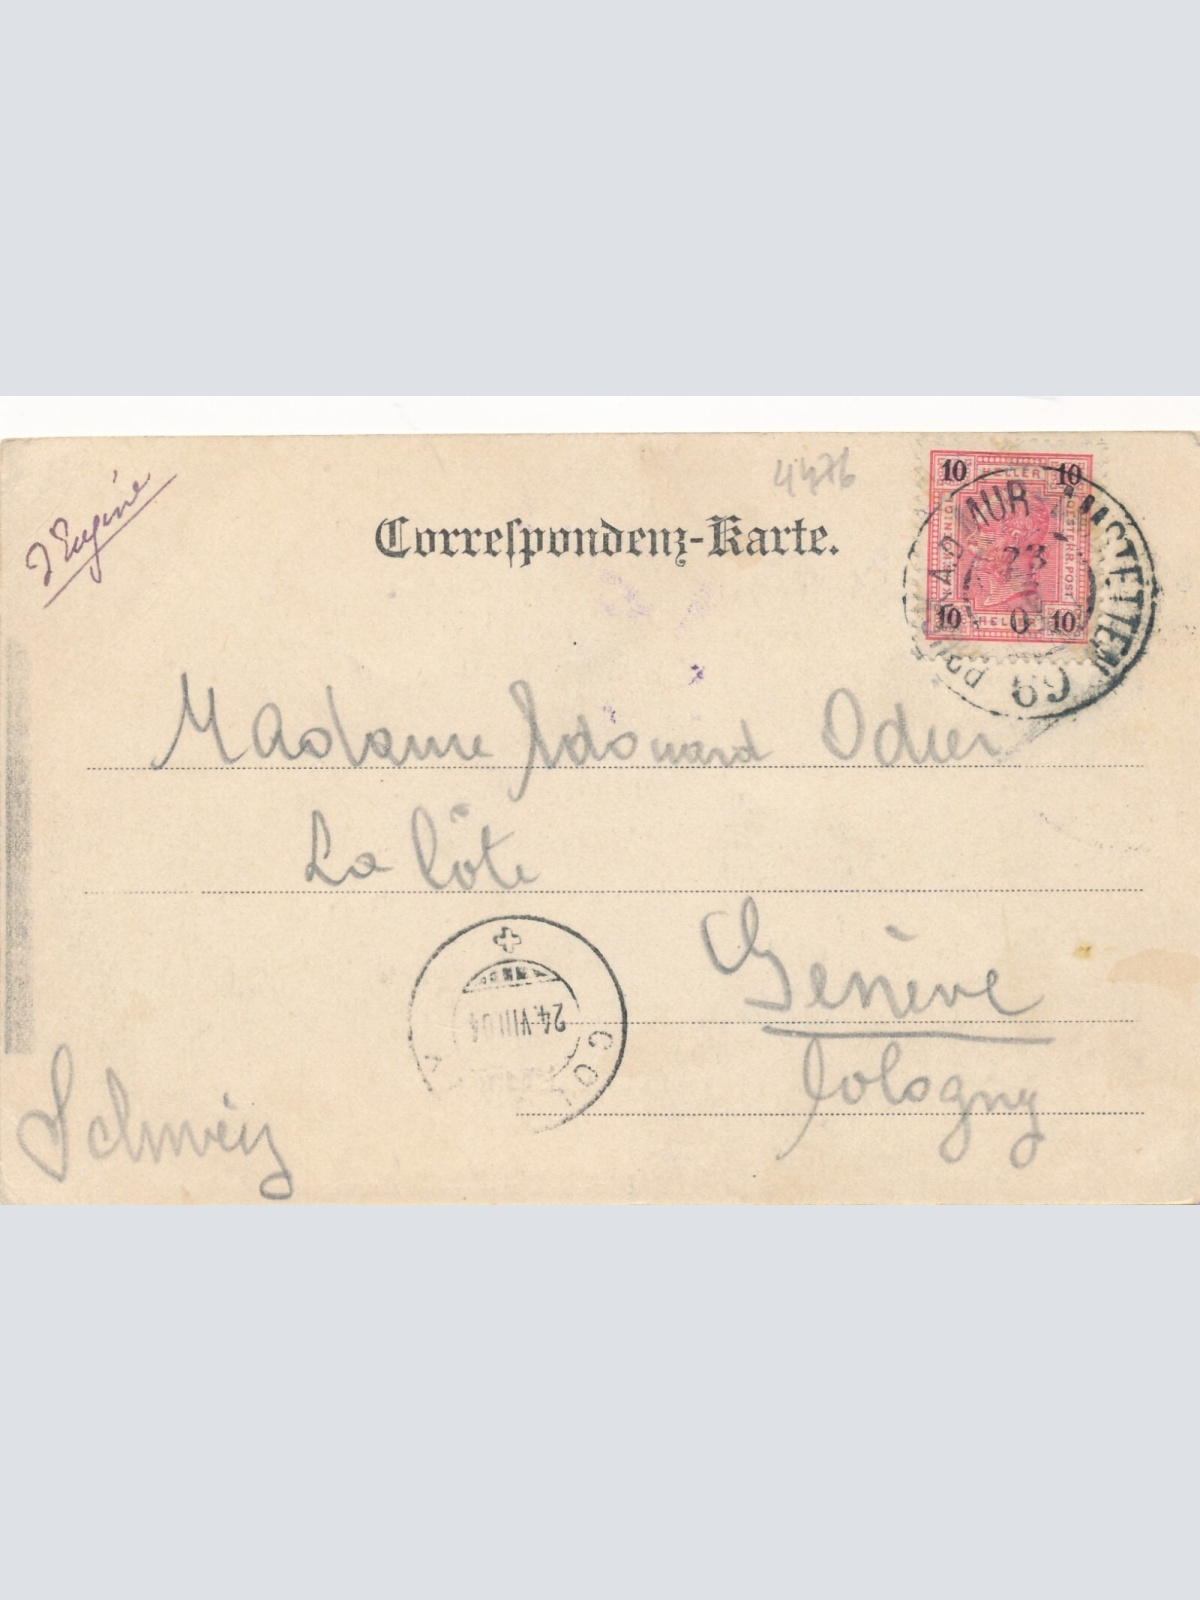 4476
Correspondenz-Karte.
Eugénie
10 HELLER 10
KAIS. KÖNIGL.
OESTERR. POST
10 HELLER 10
A.D. MUR AMSTETTEN
23
69
Madame Edouard Odier
La Côte
Genève
Cologny
24.VIII.04
Schweiz